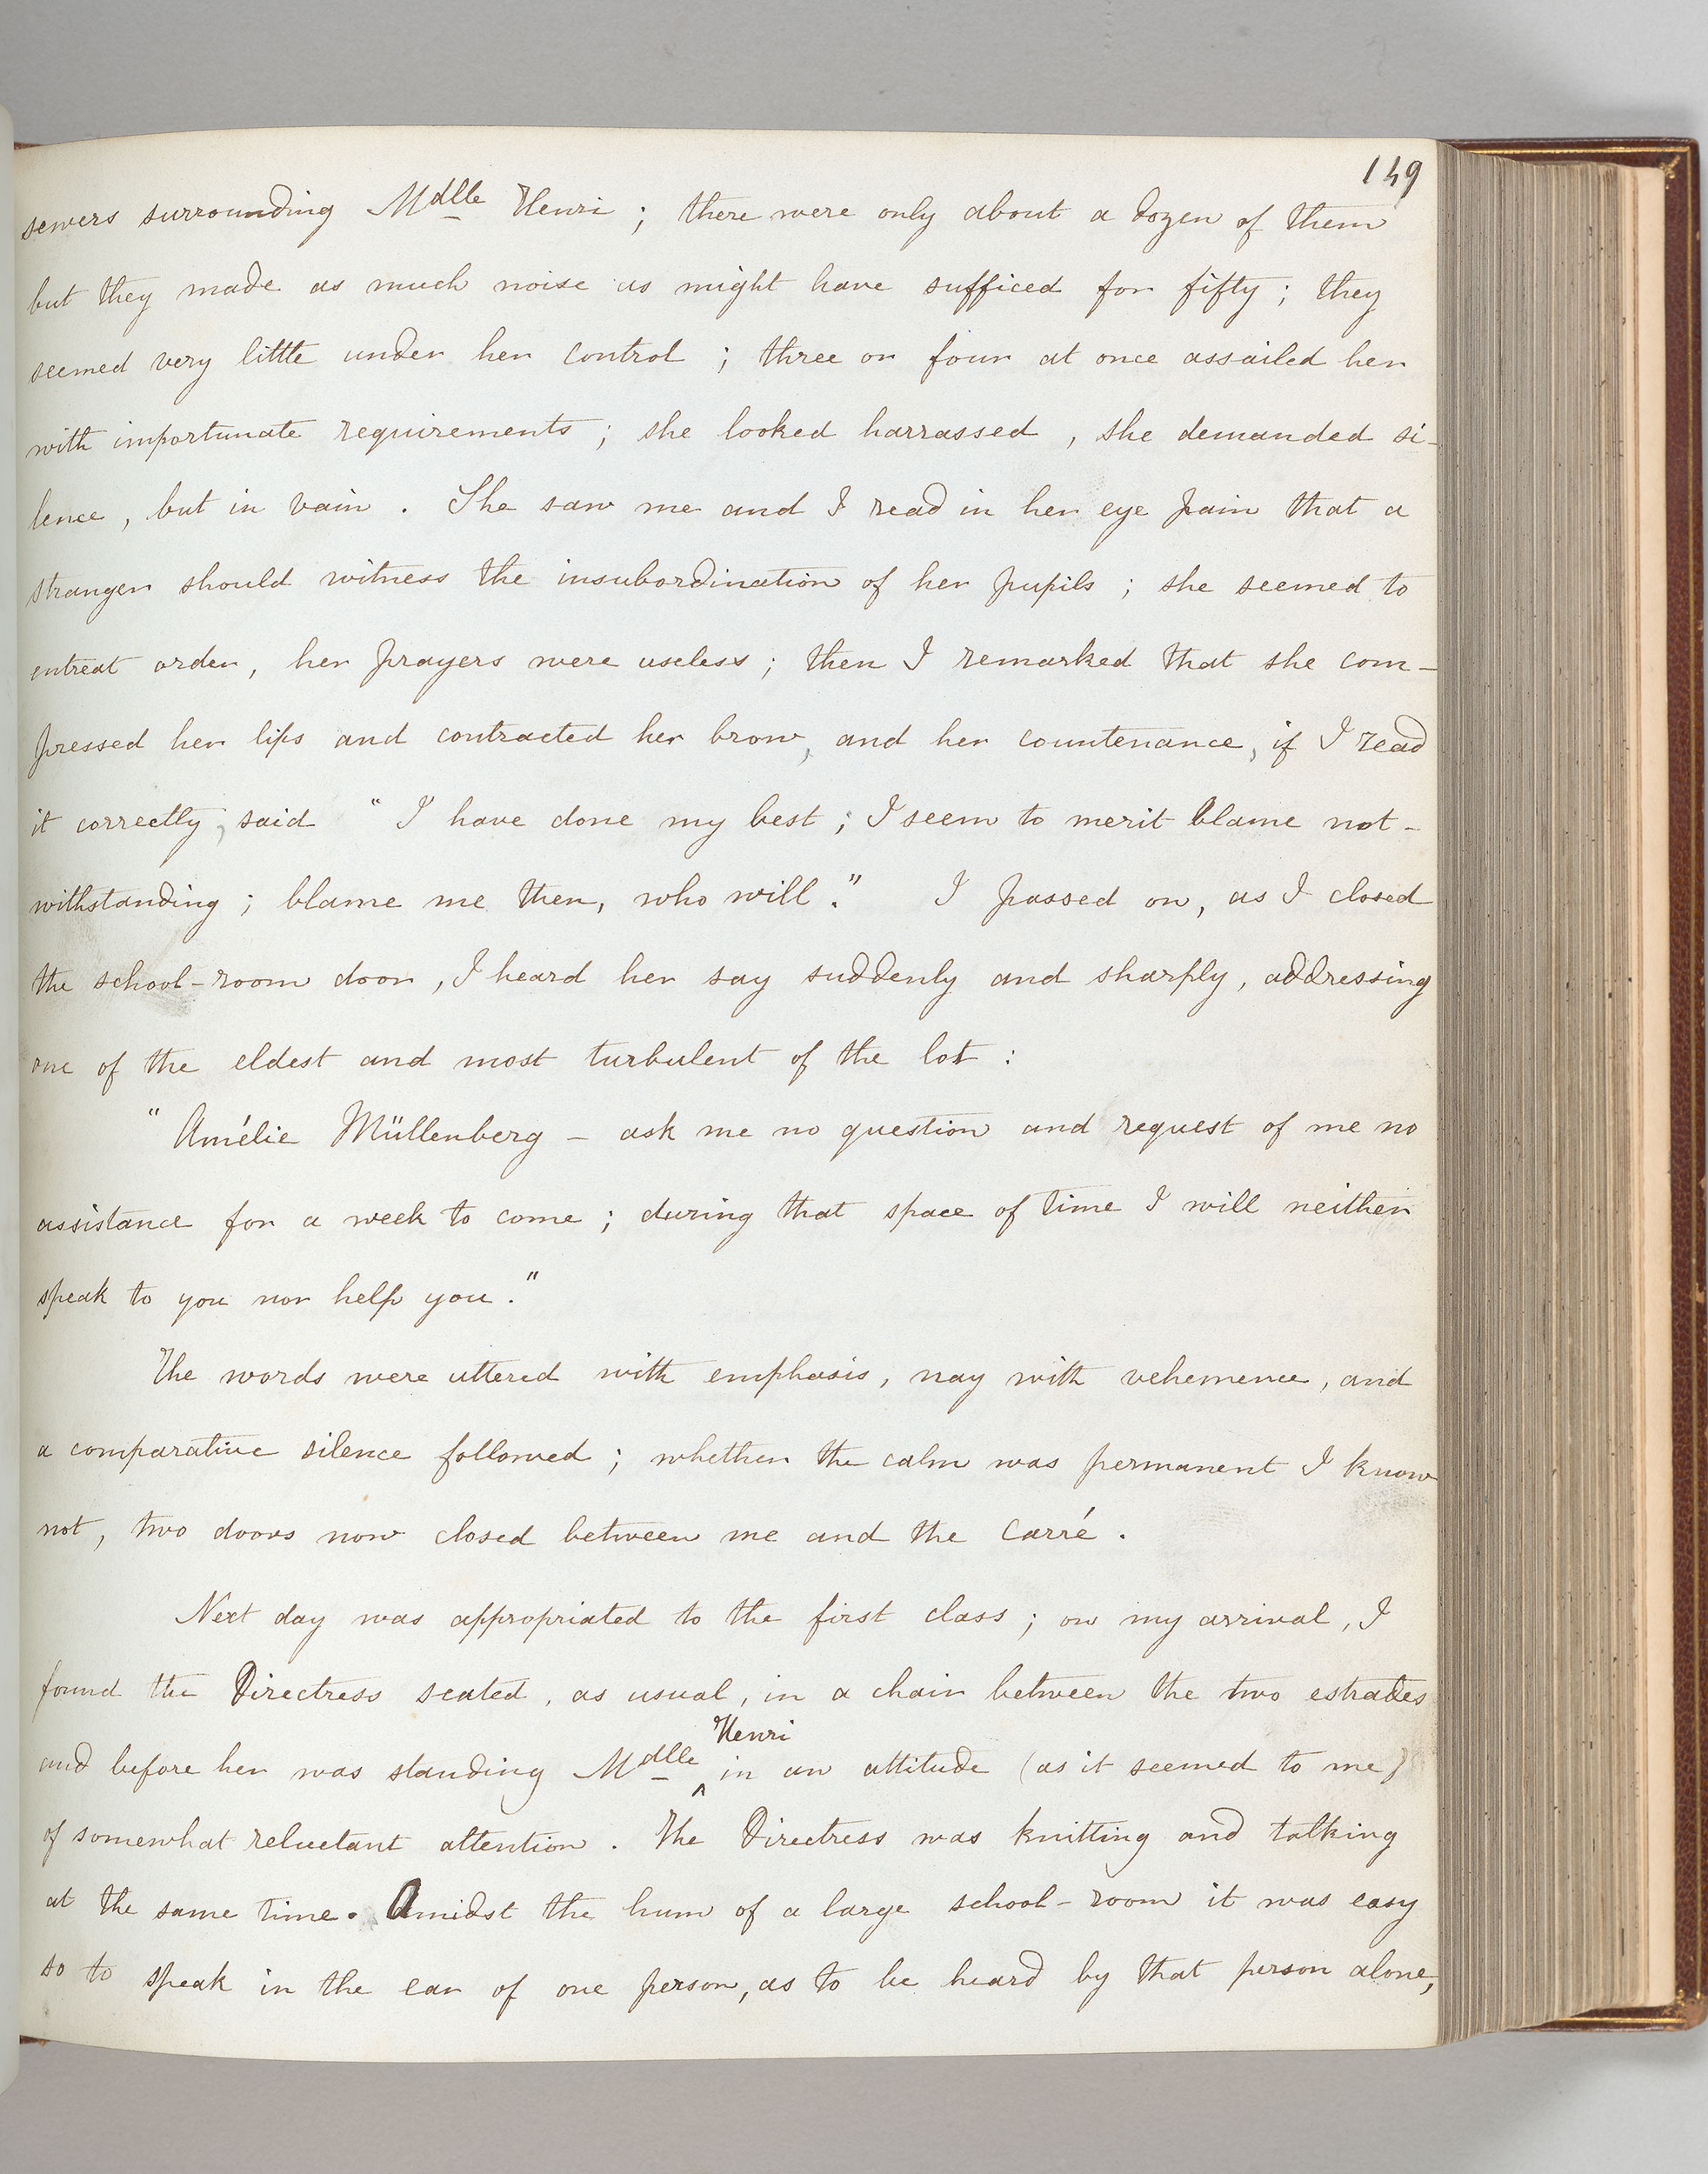 149
sewers surrounding Mdlle Henri ; there were only about a dozen of them
but they made as much noise as might have sufficed for fifty ; they
seemed very little under her control ; three or four at once assailed her
with importunate requirements ; she looked harrassed , she demanded si-
lence , but in vain . She saw me and I read in her eye pain that a
stranger should witness the insubordination of her pupils ; she seemed to
entreat order, her prayers were useless ; then I remarked that she com-
pressed her lips and contracted her brow, and her countenance, if I read
it correctly, said " I have done my best ; I seem to merit blame not-
withstanding ; blame me then, who will ." I passed on, as I closed
the school-room door , I heard her say suddenly and sharply, addressing
one of the eldest and most turbulent of the lot :
" Amélie Müllenberg - ask me no question and request of me no
assistance for a week to come ; during that space of time I will neither
speak to you nor help you ."
The words were uttered with emphasis, nay with vehemence, and
a comparative silence followed ; whether the calm was permanent I know
not, two doors now closed between me and the Carré .
Next day was appropriated to the first class ; on my arrival, I
found the Directress seated, as usual, in a chair between the two estrades
and before her was standing Mdlle ^ Henri in an attitude (as it seemed to me)
of somewhat reluctant attention . The Directress was knitting and talking
at the same time. Amidst the hum of a large school-room it was easy
so to speak in the ear of one person, as to be heard by that person alone,